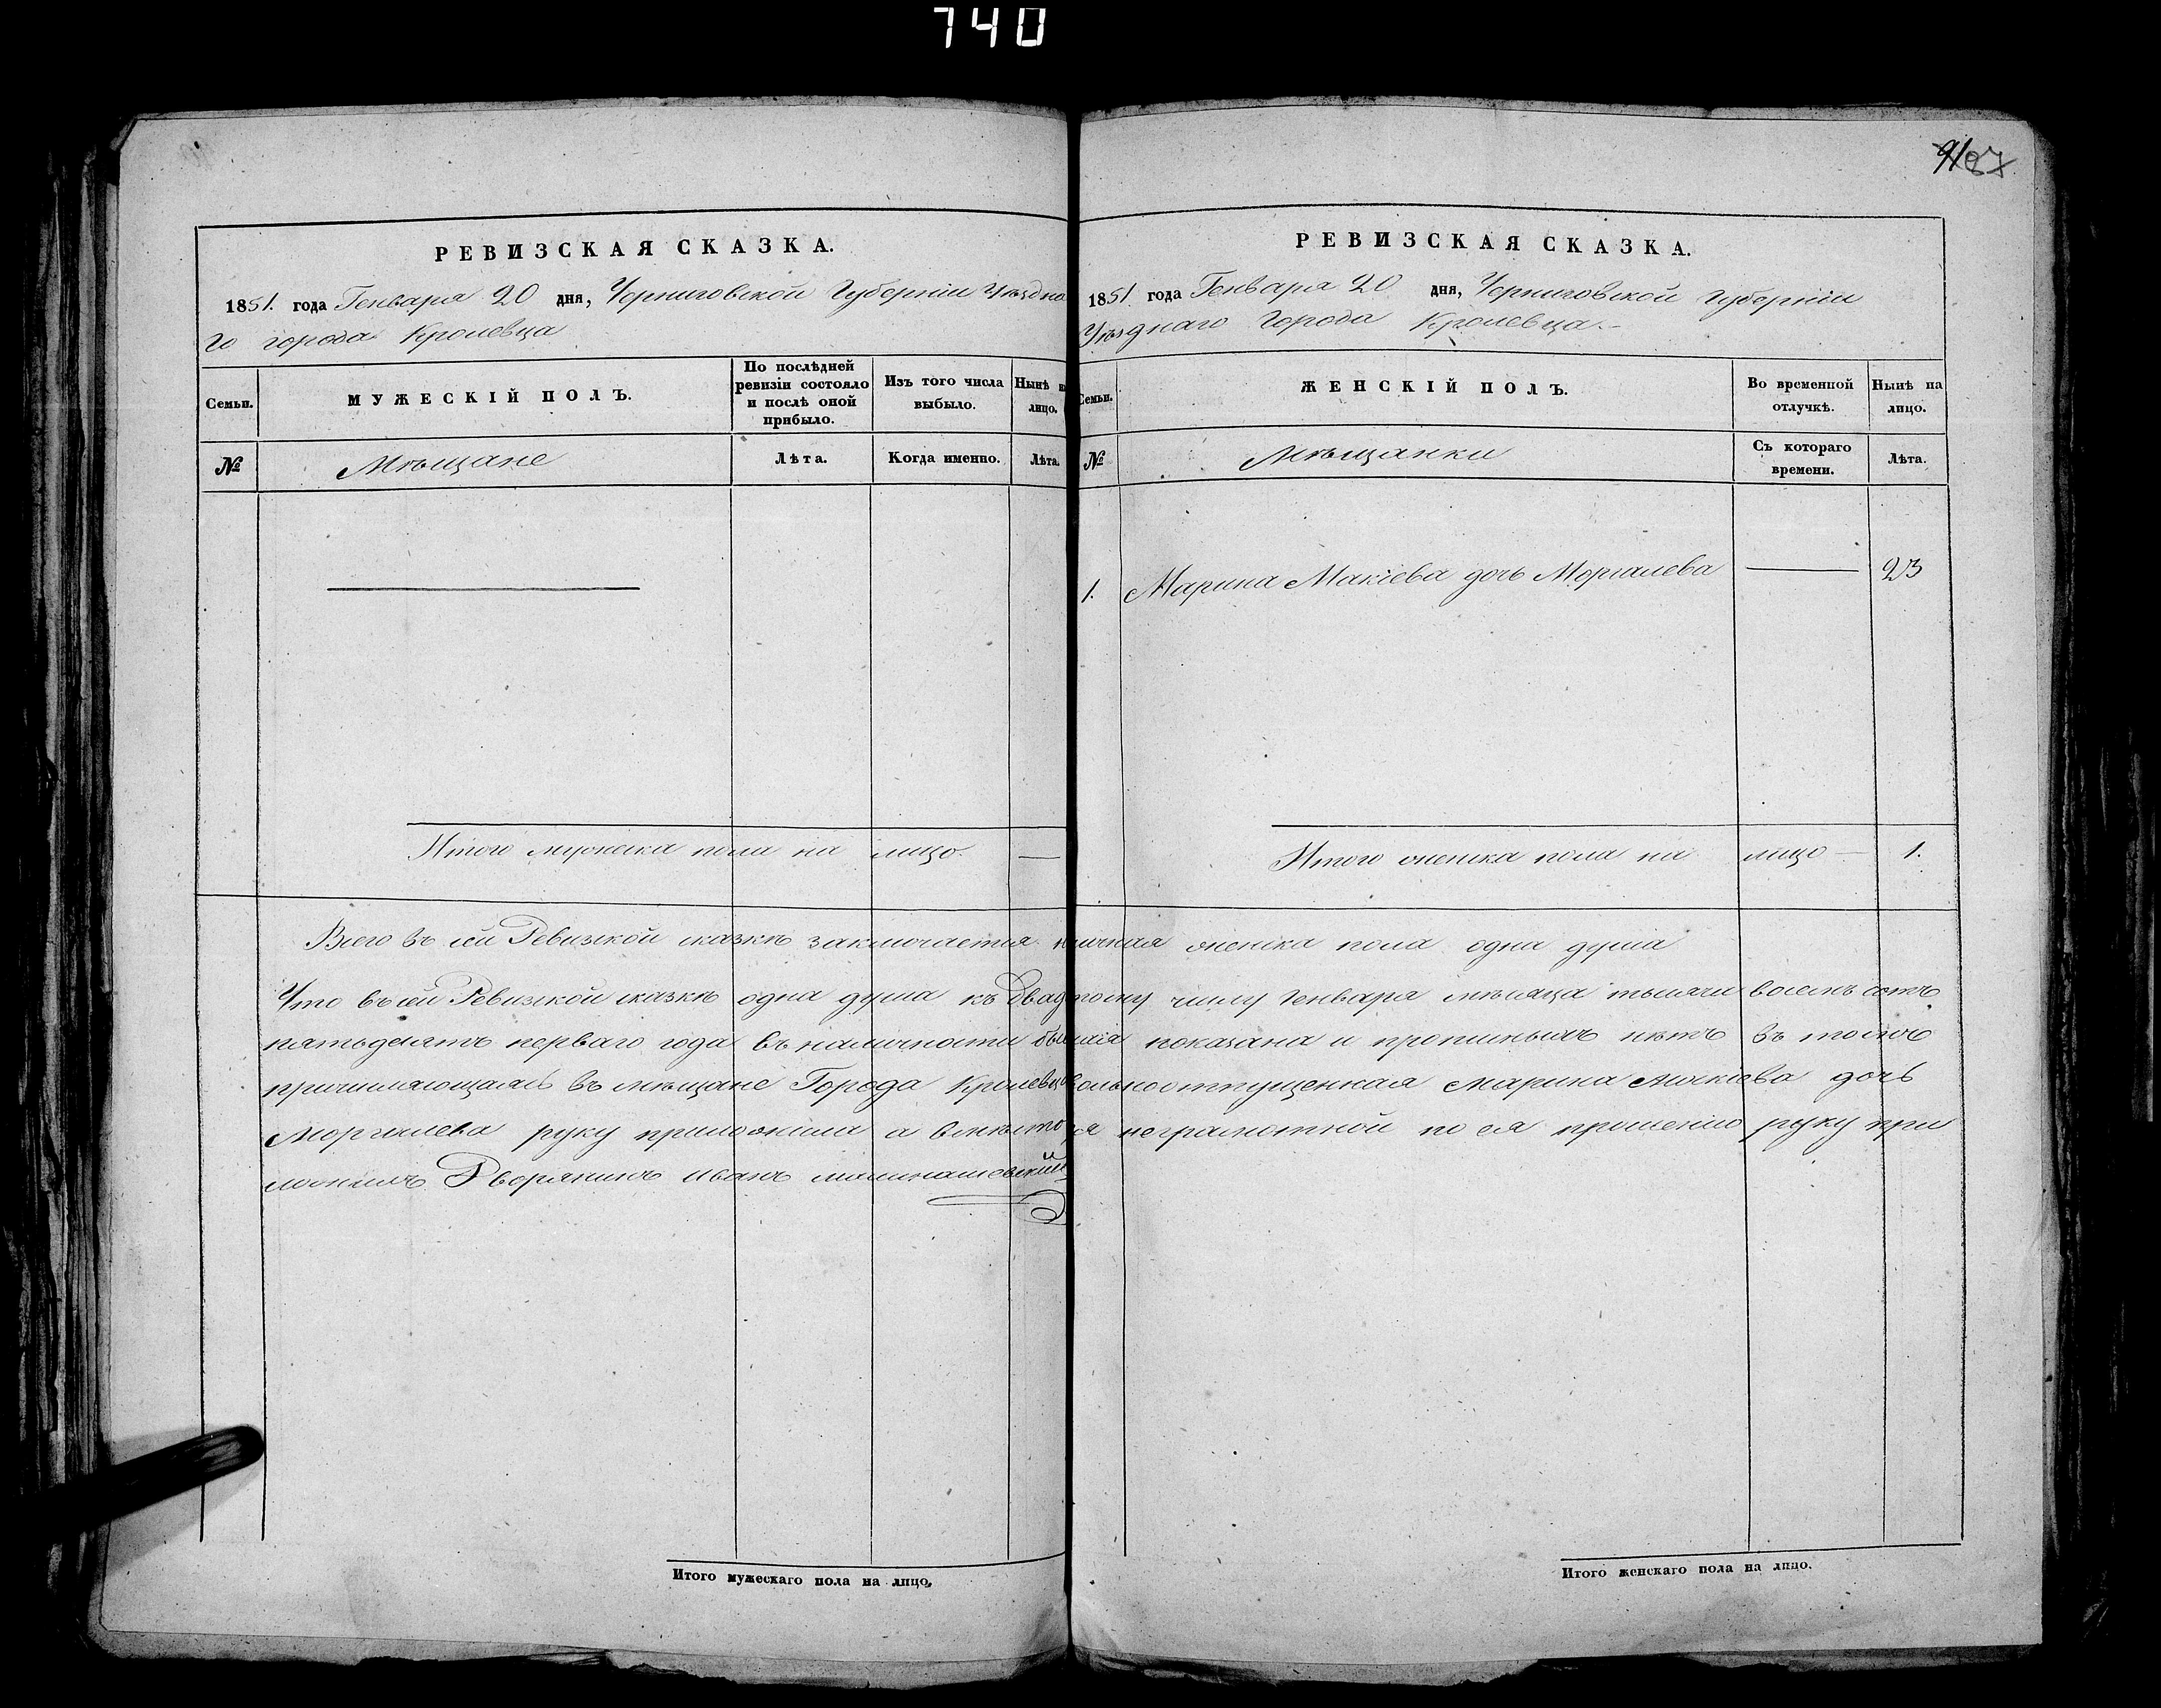 740
91
РЕВИЗСКАЯ СКАЗКА.
1851. года Генваря 20 дня, Черниговской Губерніи Уѣздна
го города Кролевца
Семьи.
МУЖЕСКІЙ ПОЛЪ.
По послѣдней ревизіи состояло и послѣ оной прибыло.
Изъ того числа выбыло.
Нынѣ на лицо.
№
Мѣщане
Лѣта.
Когда именно.
Лѣта.
Итого мужеска пола на лицо. —
РЕВИЗСКАЯ СКАЗКА.
1851. года Генваря 20 дня, Черниговской Губерніи
Уѣзднаго Города Кролевца.
Семьи.
ЖЕНСКІЙ ПОЛЪ.
Во временной отлучкѣ.
Нынѣ на лицо.
№
Мѣщанки
Съ котораго времени.
Лѣта.
1. Марина дочь Моргалева — 23
Итого женска пола на лицо — 1.
Всего въ сей Ревизской сказкѣ заключается женска пола одна душа
Что въ сей Ревизской сказкѣ одна душа къ числу Генваря мѣсяца тысяча восемь сотъ
пятьдесятъ перваго года въ наличности показана и нѣтъ въ томъ
причисляющаяся въ мѣщане Города Кролевца вольноотпущенная Марина дочь
Моргалева руку приложила а вмѣсто ея неграмотной по ея прошенію руку при
ложилъ Дворянинъ Иванъ
Итого мужескаго пола на лицо,
Итого женскаго пола на лицо.